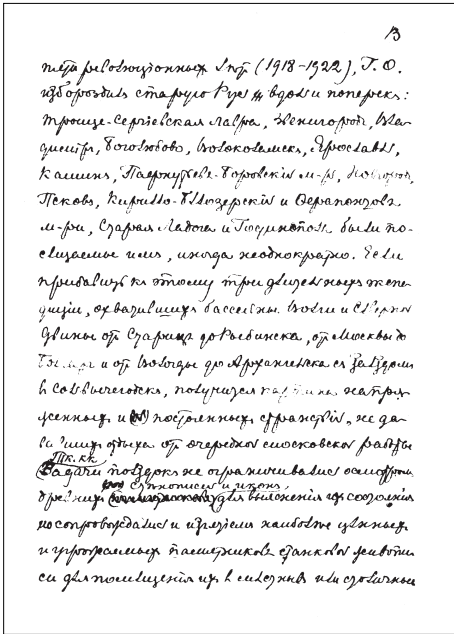 13
пяти революціонныхъ лѣтъ (1918–1922), Г. О.
избороздилъ старую Русь вдоль и поперекъ:
Троице-Сергіевская Лавра, Звенигородъ, Вла-
диміръ, Боголюбово, Волоколамскъ, Ярославль,
Кашинъ, Пафнутьево-Боровскій м-рь, Новгородъ,
Псковъ, Кирилло-Бѣлозерскій и Ѳерапонтовъ
м-ри, Старая Ладога и Гостинополь были по-
сѣщаемы имъ, иногда неоднократно. Если
прибавить къ этому три длительныхъ экспе-
диціи, охватившихъ бассейны Волги и Сѣверной
Двины от Старицы до Рыбинска, от Москвы до
и от Вологды до Архангельска съ заѣздомъ
в Сольвычегодскъ, получится картина напря-
женныхъ и постоянныхъ странствій, не да-
вавшихъ отдыха от очередной московской работы
Задачи поѣздокъ не ограничивались осмотромъ
стѣнописей и иконъ,
древнихъ для выясненія ихъ состоянія
но сопровождались и изъятіемъ наиболѣе цѣнныхъ
и угрожаемыхъ памятниковъ станковой живопи-
си для помѣщенія ихъ в мѣстные или столичные